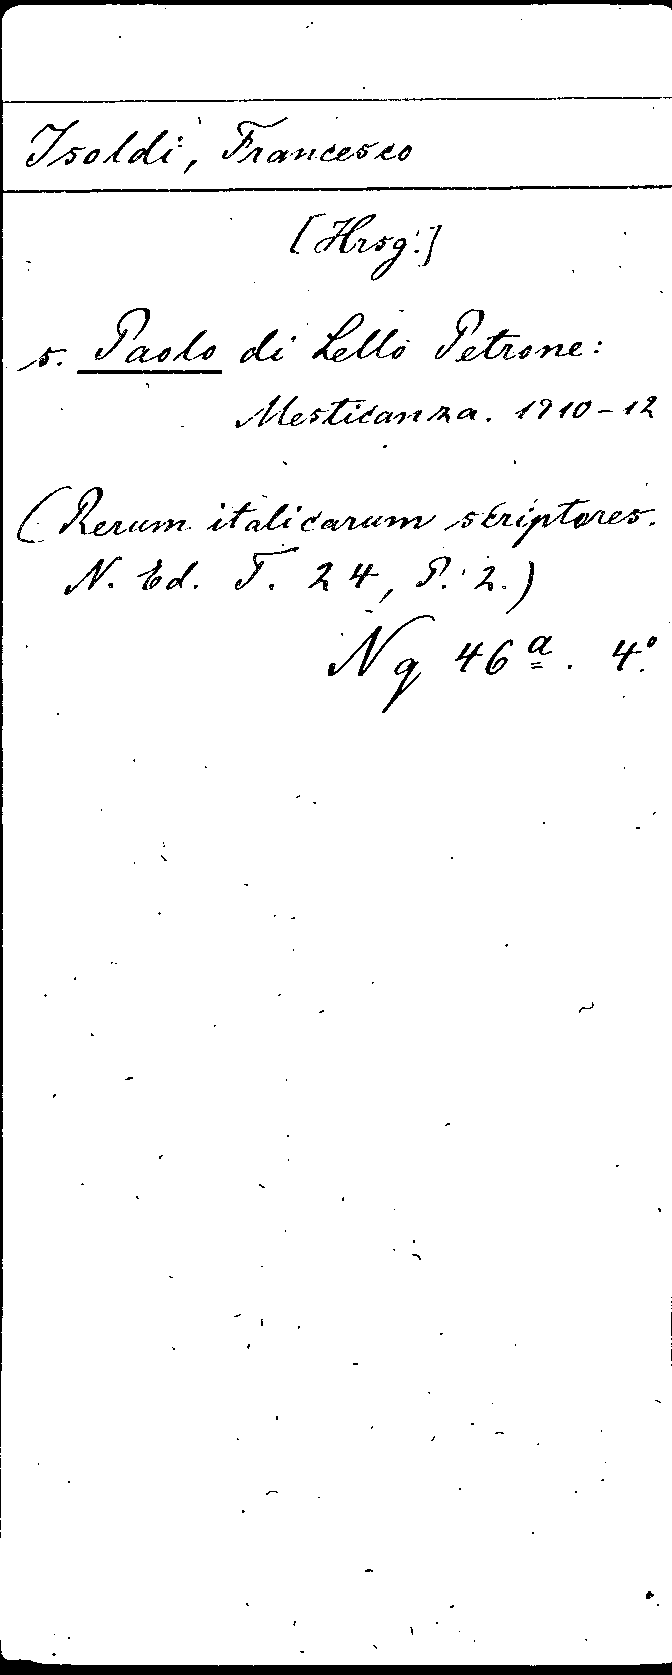 Isoldi, Francesco
[Hrsg.]
s. Paolo di Lello Petrone:
Mesticanza. 1910-12
(Rerum italicarum scriptores.
N. Ed. T. 24, P. 2.)
Nq 46ª. 4°.